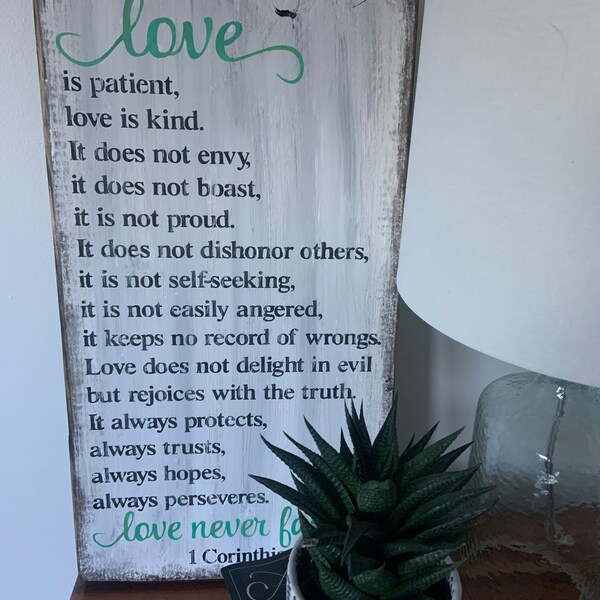 love
is patient,
love is kind.
It does not envy,
it does not boast,
it is not proud.
It does not dishonor others,
it is not self-seeking,
it is not easily angered,
it keeps no record of wrongs.
Love does not delight in evil
but rejoices with the truth.
It always protects,
always trusts,
always hopes,
always perseveres.
love never fa
1 Corinthi